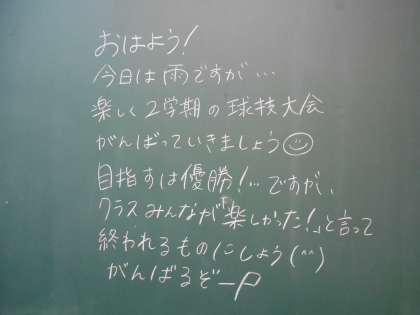 おはよう!
今日は雨ですが…
楽しく2学期の球技大会
がんばっていきましょう☺
目指すは優勝!…ですが、
クラスみんなが「楽しかった!」と言って
終われるものにしよう(^^)
がんばるぞーP